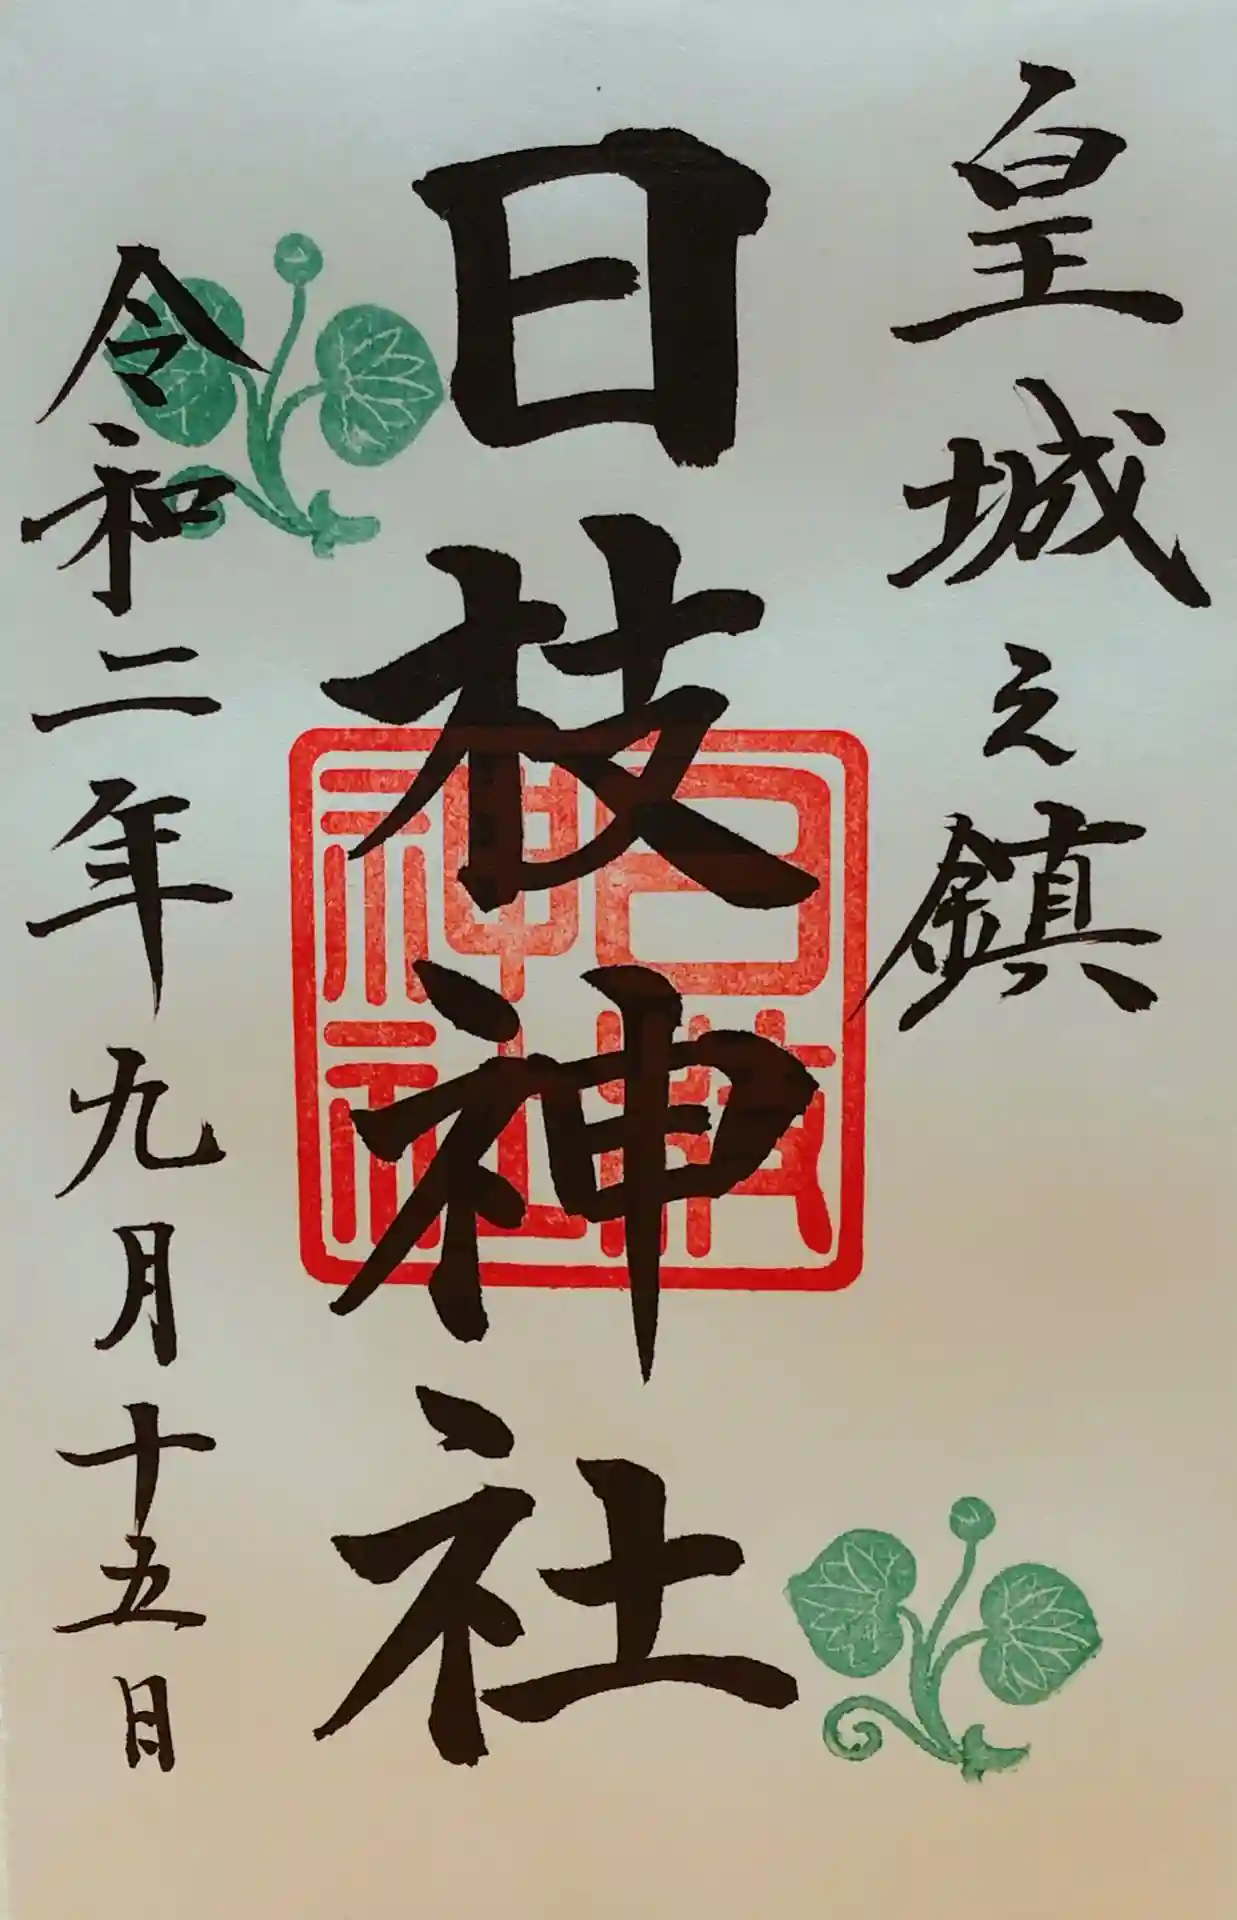 皇城之鎮
日枝神社
日枝
神社
令和二年九月十五日